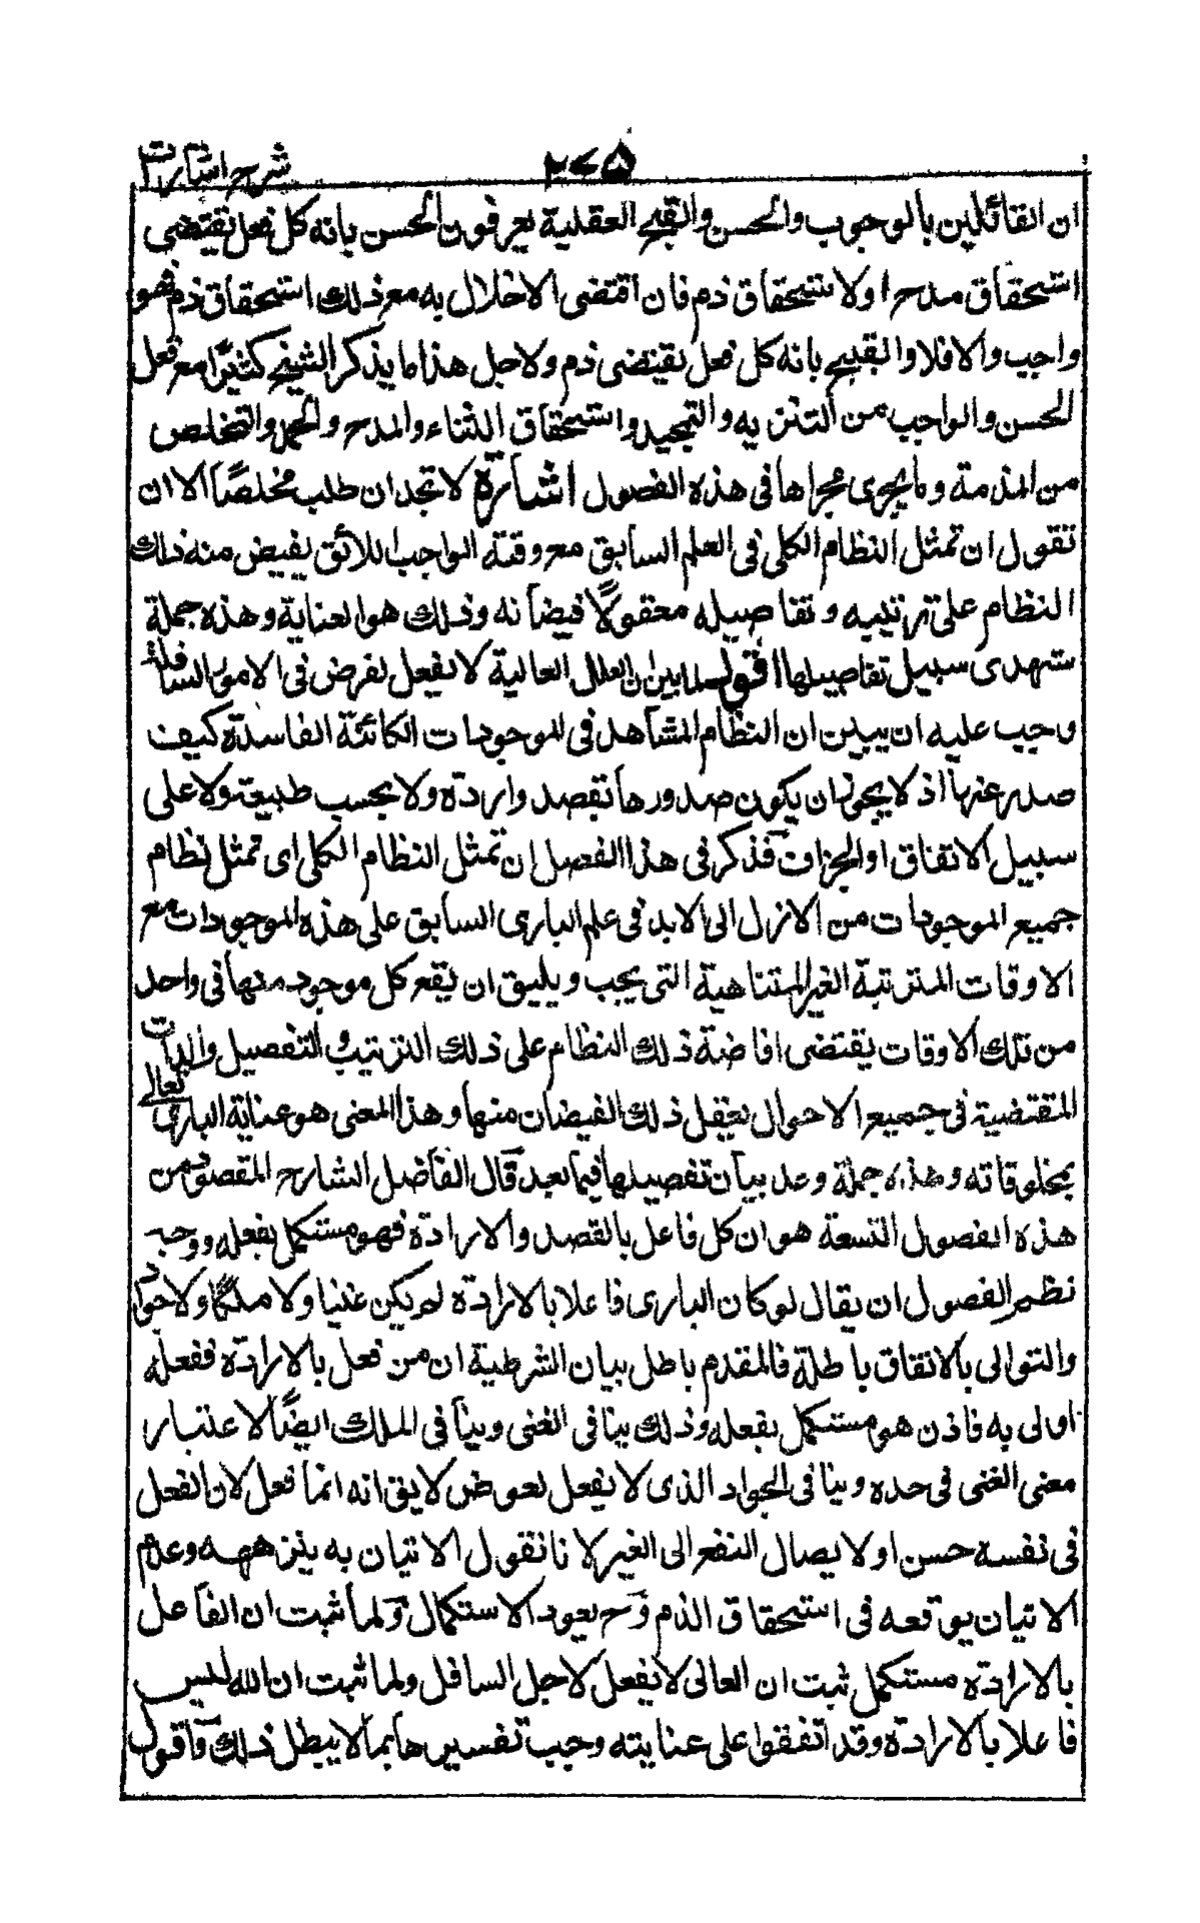 ۲۷۵
شرح اشارات
ان القائلين بالوجوب والحسن والقبح العقلية يعرفون الحسن بانه كل فعل يقتضى
استحقاق مدح او لا استحقاق ذم فان اقتضى الاخلال به مع ذلك استحقاق ذم فهو
واجب والا فلا والقبيح بانه كل فعل يقتضى ذم ولاجل هذا ما يذكر الشيخ كثيرًا مع فعل
الحسن والواجب من التنزيه والتمجيد واستحقاق الثناء والمدح والحمد والتخلص
من المذمة وما يجرى مجراها فى هذه الفصول اشارة لا تجد ان طلب مخلصًا الا ان
تقول ان تمثل النظام الكلى فى العلم السابق مع وقته الواجب اللائق يفيض منه ذلك
النظام على ترتيبه وتفاصيله معقولًا فيضانه وذلك هو العناية وهذه جملة
ستهدى سبيل تفاصيلها اقول لما بين ان العلل العالية لا تفعل لغرض فى الامور السافلة
وجب عليه ان يبين ان النظام المشاهد فى الموجودات الكائنة الفاسدة كيف
صدر عنها اذ لا يجوز ان يكون صدورها بقصد وارادة ولا بحسب طبيعة ولا على
سبيل الاتفاق او الجزاف فذكر فى هذا الفصل ان تمثل النظام الكلى اى تمثل نظام
جميع الموجودات من الازل الى الابد فى علم البارى السابق على هذه الموجودات مع
الاوقات المترتبة الغير المتناهية التى يجب ويليق ان يقع كل موجود منها فى واحد
من تلك الاوقات يقتضى افاضة ذلك النظام على ذلك الترتيب والتفصيل والذات
المقتضية فى جميع الاحوال يعقل ذلك الفيضان منها وهذا المعنى هو عناية البارى تعالى
بمخلوقاته وهذه جملة وعد بيان تفصيلها فيما بعد قال الفاضل الشارح المقصود من
هذه الفصول التسعة هو ان كل فاعل بالقصد والارادة فهو مستكمل بفعله ووجه
نظم الفصول ان يقال لو كان البارى فاعلا بالارادة لم يكن غنيا ولا ملكًا ولا جواد
والتوالى بالاتفاق باطلة فالمقدم باطل بيان الشرطية ان من فعل بالارادة ففعله
اولى به فاذن هو مستكمل بفعله وذلك ينافى الغنى وينافى الملك ايضًا لاعتبار
معنى الغنى فى حده وينافى الجواد الذى لا يفعل لعوض لا يق انه انما فعل لان الفعل
فى نفسه حسن او لايصال النفع الى الغير لانا نقول الاتيان به ينزهه وعدم
الاتيان يوقعه فى استحقاق الذم وح يعود الاستكمال و لما ثبت ان الفاعل
بالارادة مستكمل ثبت ان العالى لا يفعل لاجل السافل ولما ثبت ان الله ليس
فاعلا بالارادة وقد اتفقوا على عنايته وجب تفسيرها بما لا يبطل ذلك واقول